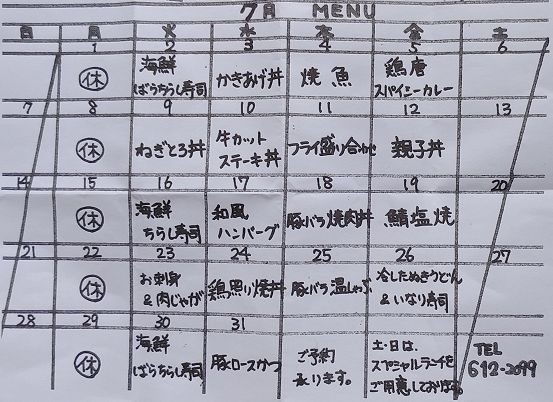 7月 MENU
日 月 火 水 木 金 土
1 2 3 4 5 6
休
海鮮
ばらちらし寿司
かきあげ丼
焼魚
鶏唐
スパイシーカレー
7 8 9 10 11 12 13
休
ねぎとろ丼
牛カット
ステーキ丼
フライ盛り合わせ
親子丼
14 15 16 17 18 19 20
休
海鮮
ちらし寿司
和風
ハンバーグ
豚バラ焼肉丼
鯖塩焼
21 22 23 24 25 26 27
休
お刺身
&肉じゃが
鶏照り焼丼
豚バラ温しゃぶ
冷したぬきうどん
&いなり寿司
28 29 30 31
休
海鮮
ばらちらし寿司
豚ロースかつ
ご予約
承ります。
土・日は、
スペシャルランチを
ご用意しております。
TEL
612-2099